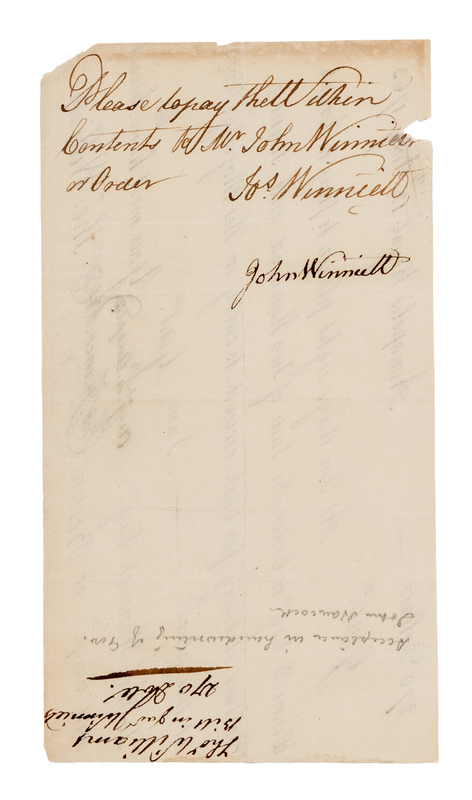 Please to pay the Within
Contents to Mr John Winniett
or Order Jos. Winniett
John Winniett
Acceptance in handwriting of Gov.
John Hancock.
Thos Williams
Bill in favr Winniett
270 Doll.